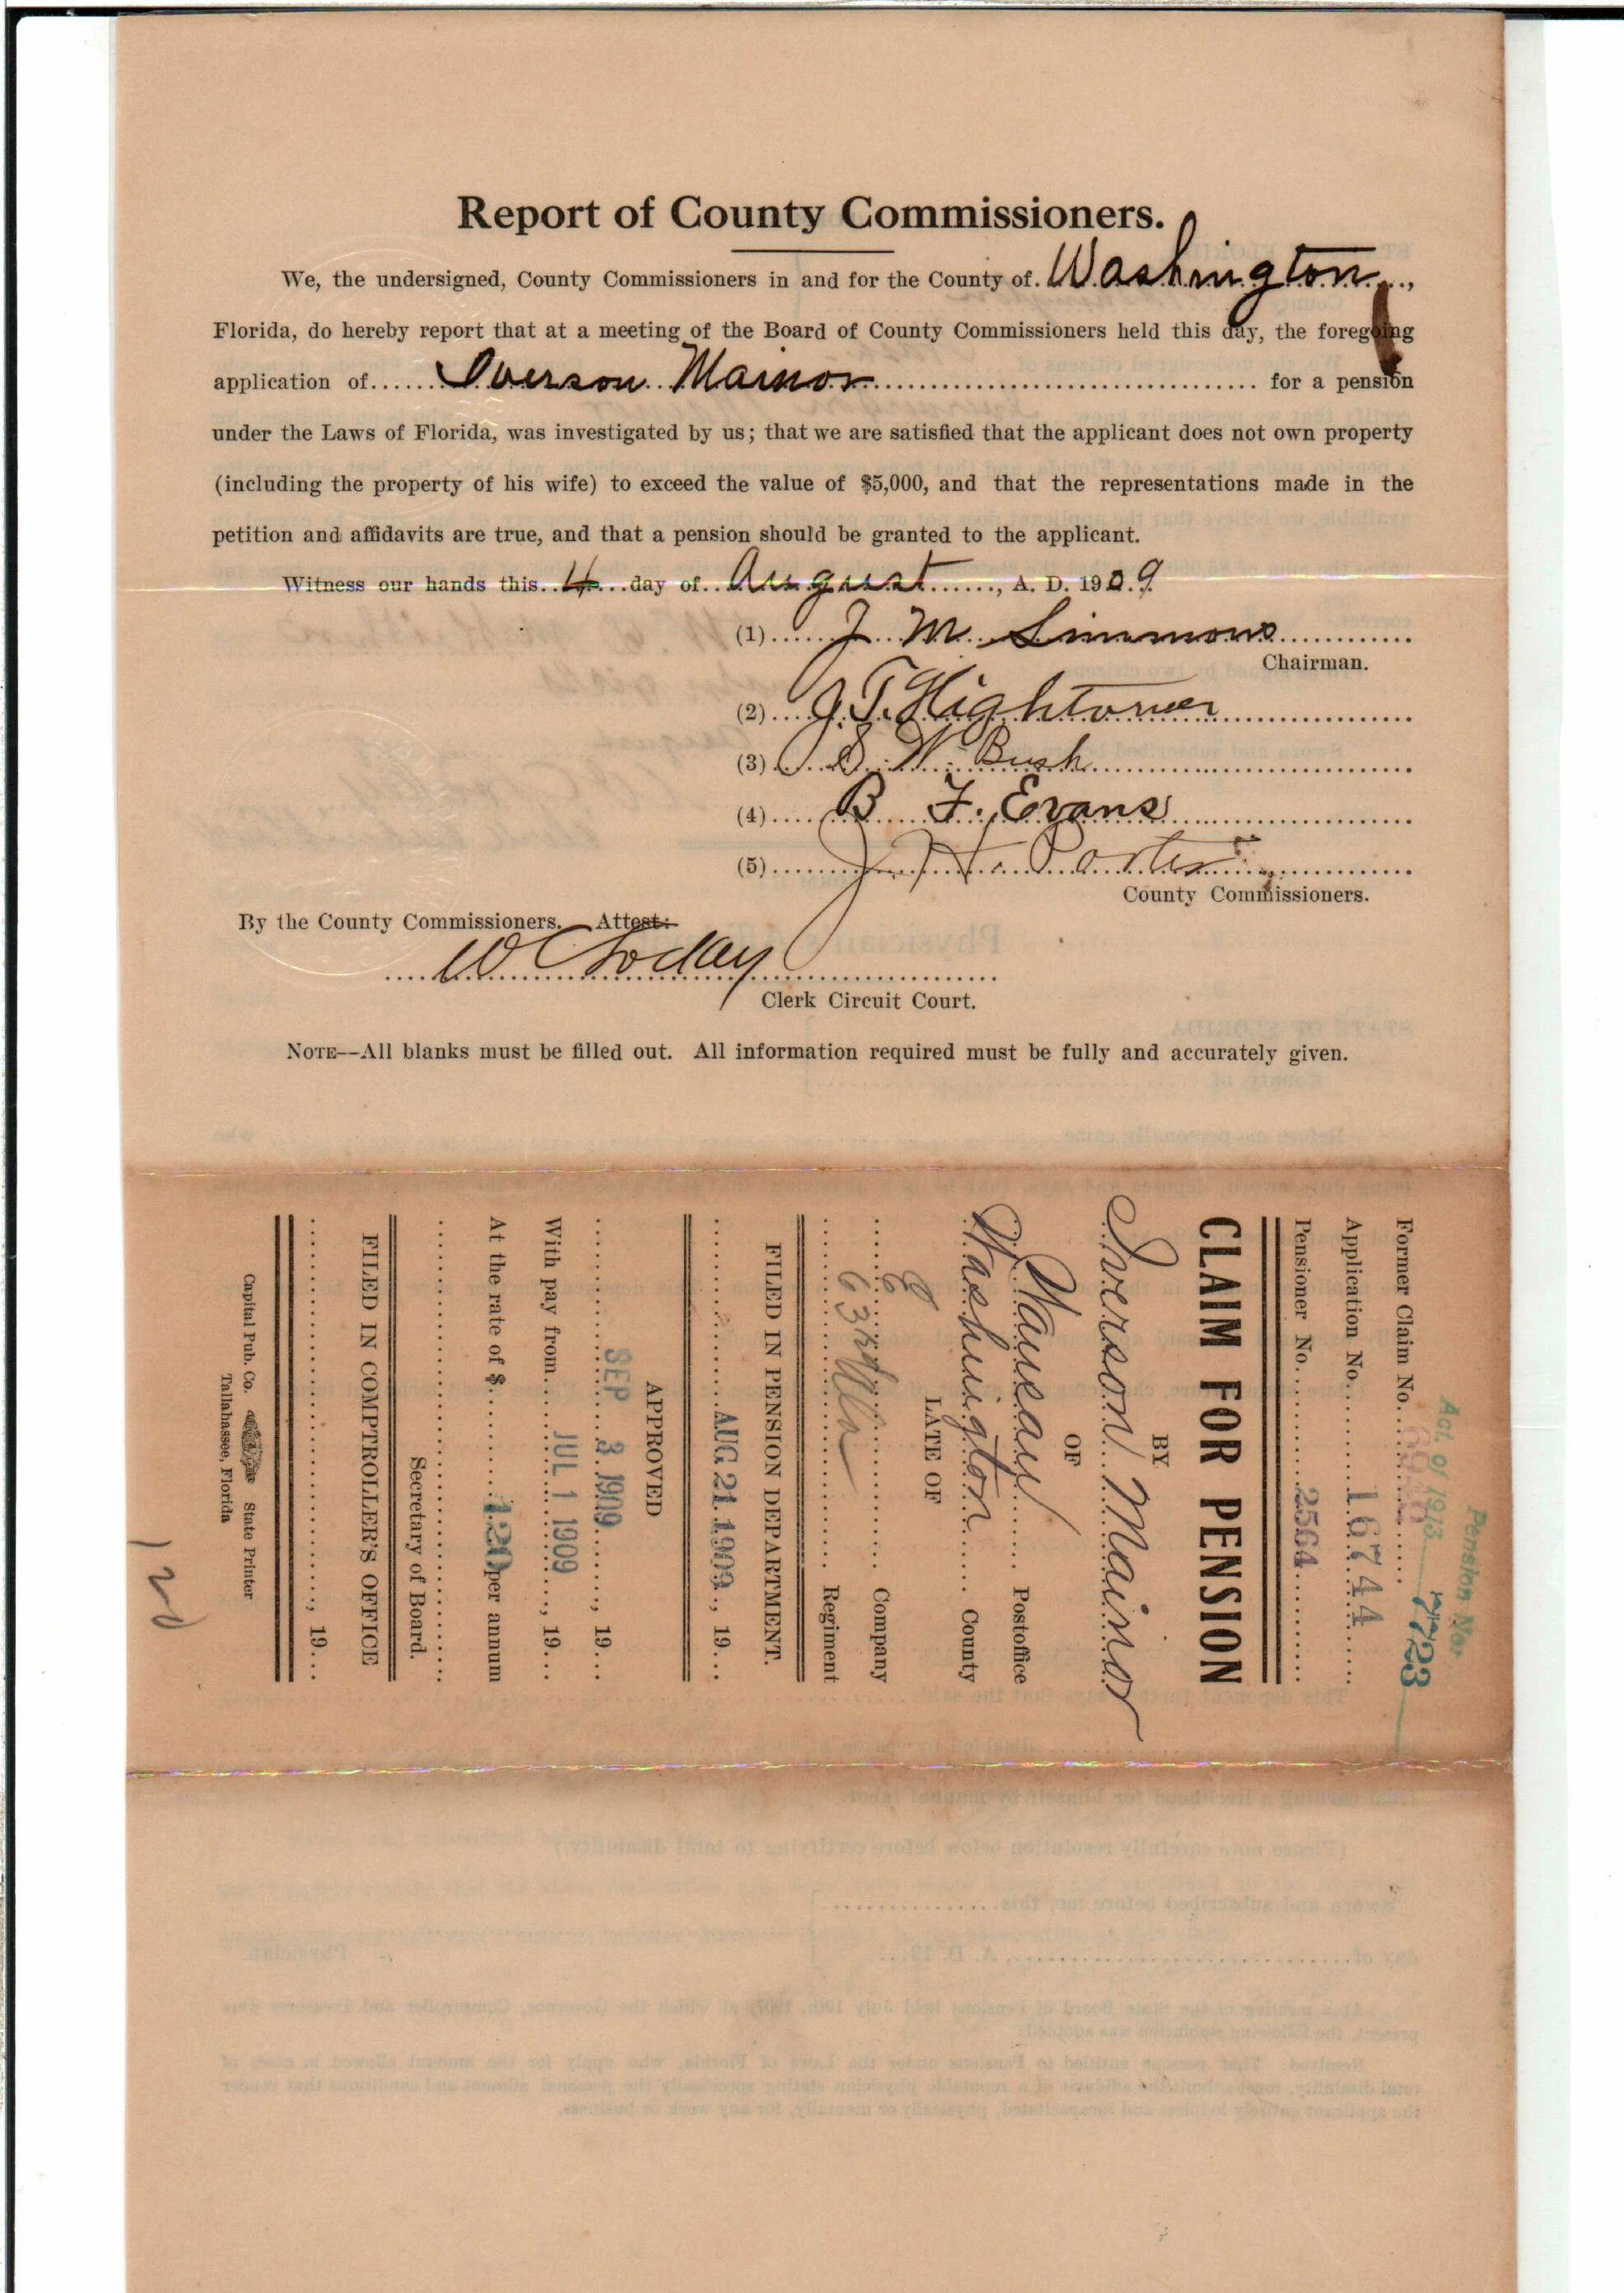 Report of County Commissioners.
We, the undersigned, County Commissioners in and for the County of Washington,
Florida, do hereby report that at a meeting of the Board of County Commissioners held this day, the foregoing
application of Iverson Mainor for a pension
under the Laws of Florida, was investigated by us; that we are satisfied that the applicant does not own property
(including the property of his wife) to exceed the value of $5,000, and that the representations made in the
petition and affidavits are true, and that a pension should be granted to the applicant.
Witness our hands this 4 day of August, A. D. 1909
(1) J. M. Simmons
Chairman.
(2) J. T. Hightower
(3) S. W. Bush
(4) B. F. Evans
(5) J. H. Porter
County Commissioners.
By the County Commissioners. Attest:
W C Lockey
Clerk Circuit Court.
NOTE—All blanks must be filled out. All information required must be fully and accurately given.
Pension No.
Act of 1913
7723
Former Claim No.
Application No. 16744
Pensioner No. 2564
CLAIM FOR PENSION
BY
Iverson Mainor
OF
Wausau Postoffice
Washington County
LATE OF
Company
63rd Ala Regiment
FILED IN PENSION DEPARTMENT.
AUG 21 1909, 19
APPROVED
SEP 3 1909, 19
With pay from JUL 1 1909, 19
At the rate of $ 120 per annum
Secretary of Board.
FILED IN COMPTROLLER'S OFFICE
, 19
Capital Pub. Co. State Printer
Tallahassee, Florida
120